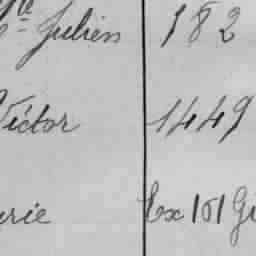 Julien 182
Victor 1449
rie Ex 151 Gi